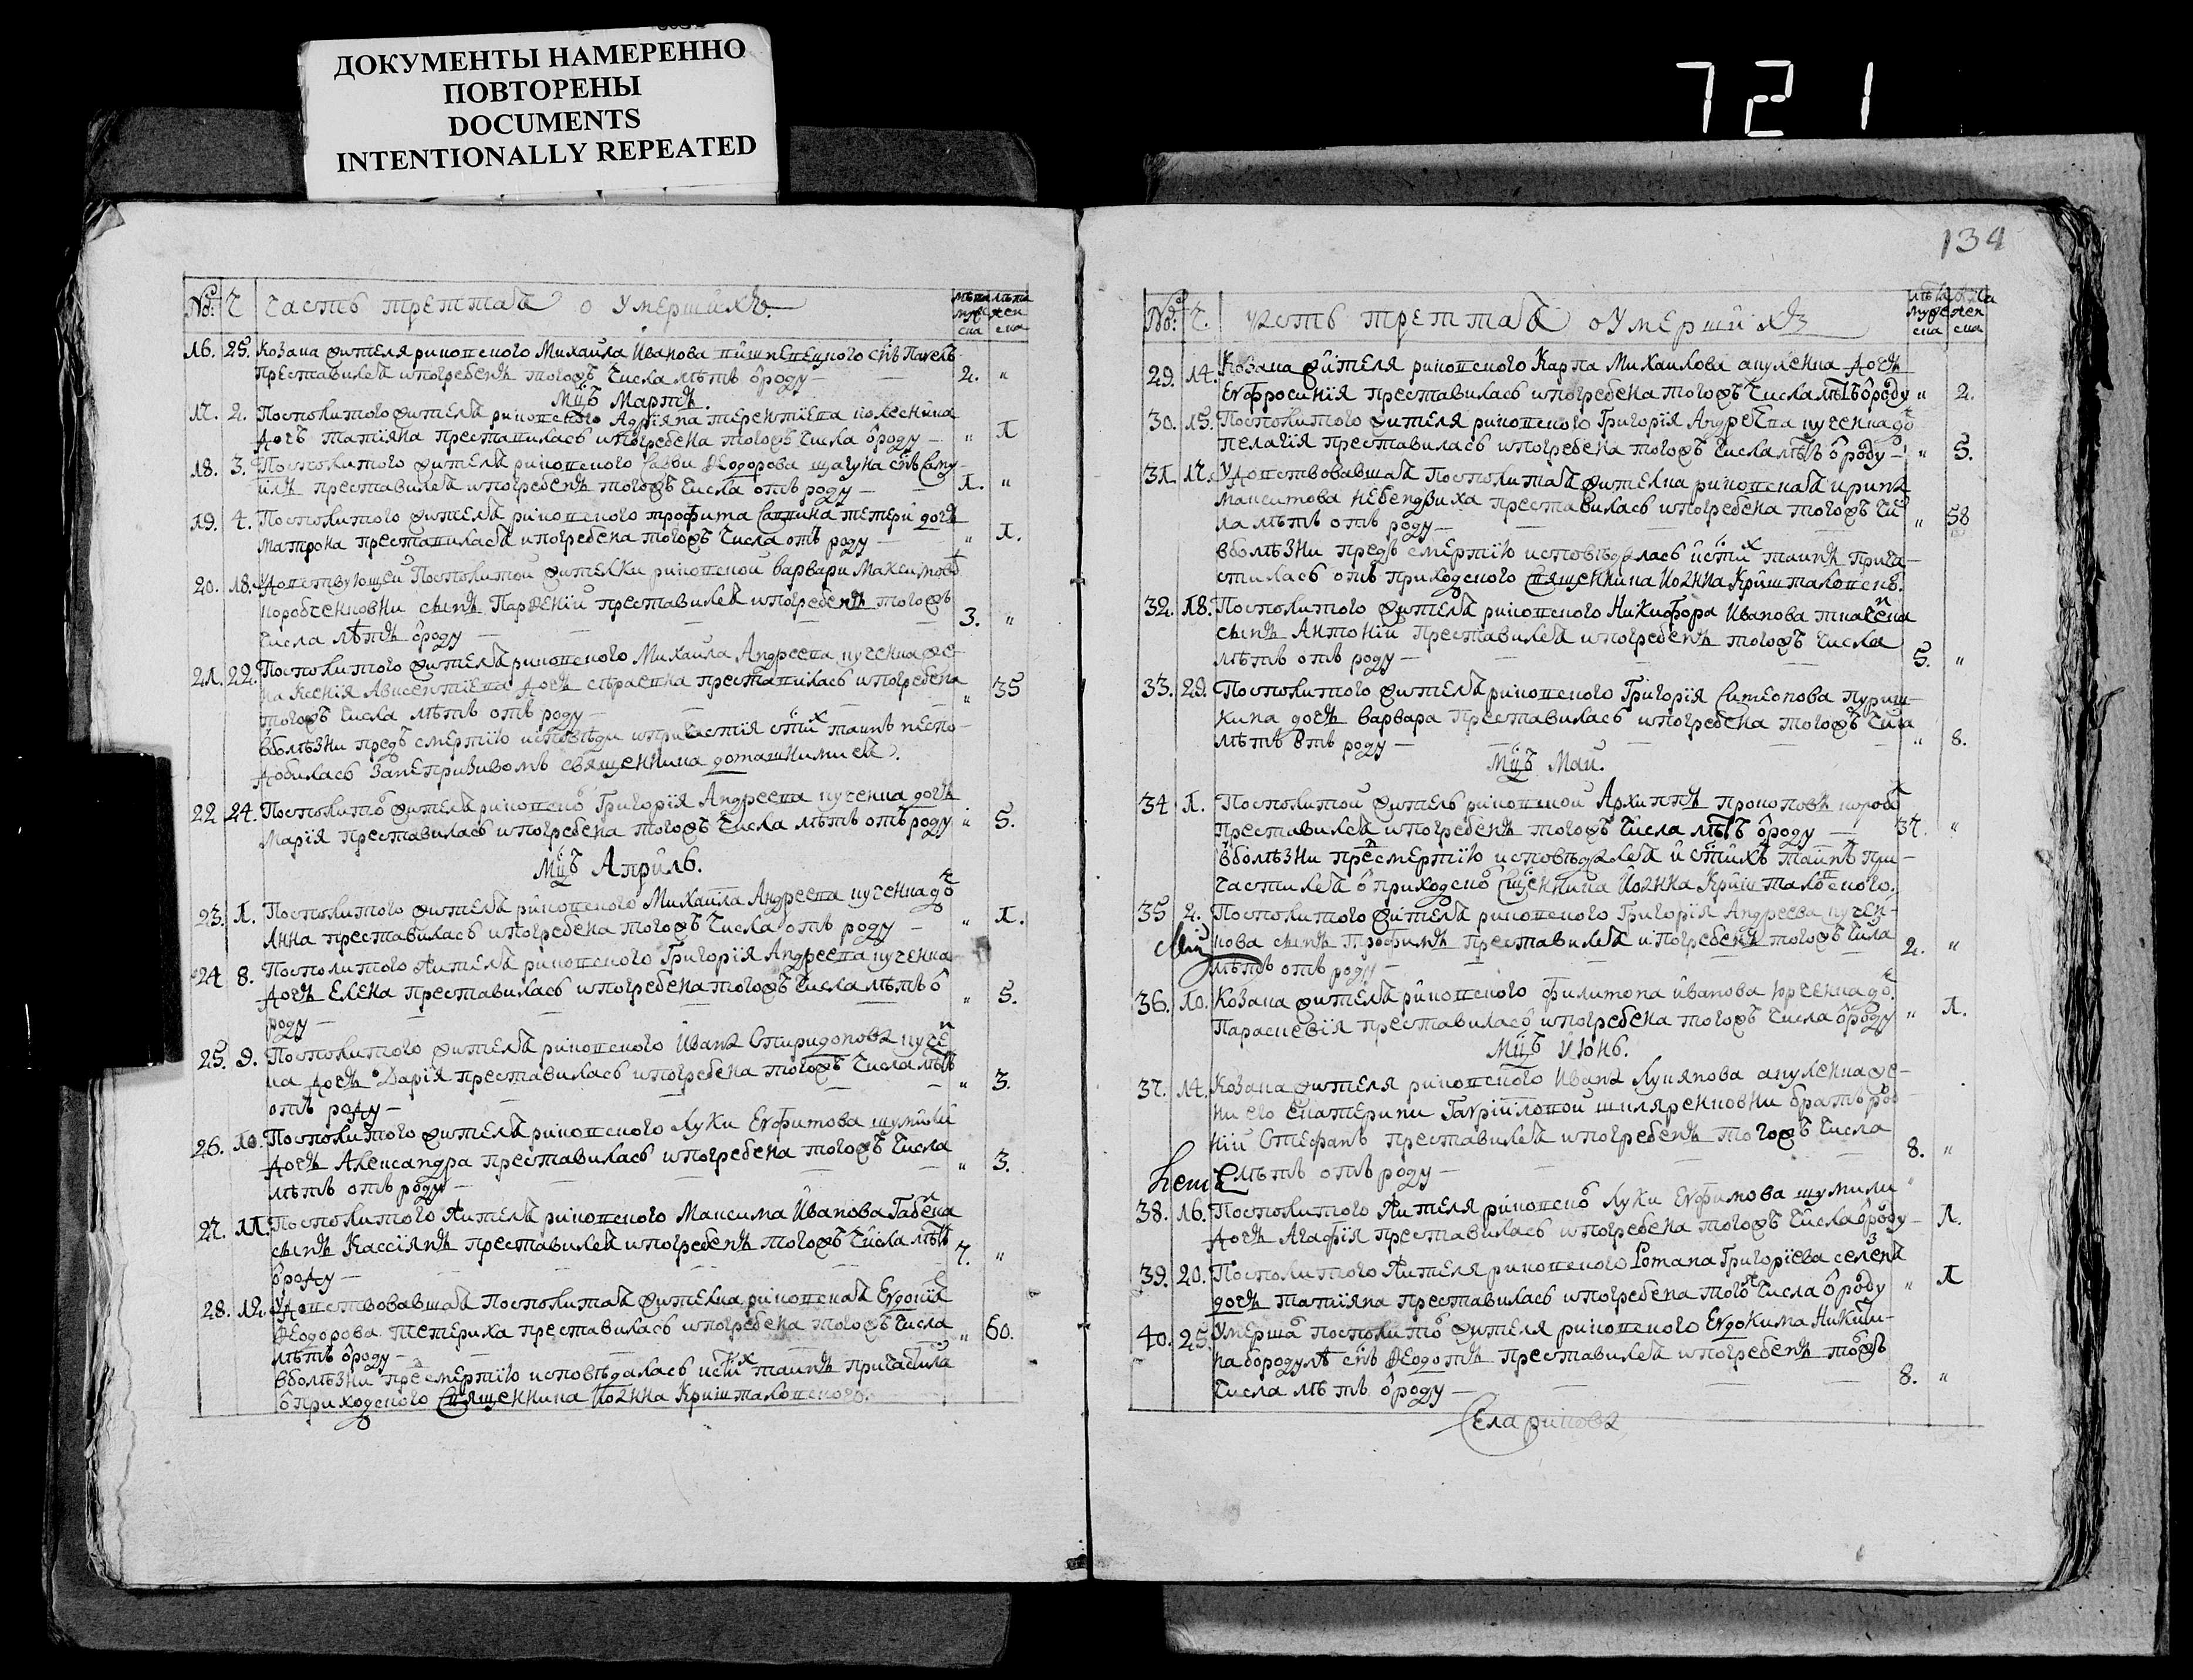 ДОКУМЕНТЫ НАМЕРЕННО
ПОВТОРЕНЫ
DOCUMENTS
INTENTIONALLY REPEATED
721
No: Ч часть треттая о умершихъ
16. 25. Козака жителя риповского Михайла Иванова сн҃ъ Павелъ
преставился и погребенъ тогожъ числа лѣтъ ѿроду — 2. "
Мцъ Мартъ.
17. 2. Посполитого жителя риповского Адріяна Терентіева колесника
дочь Татіяна преставилась и погребена тогожъ числа ѿроду — " 1
18. 3. Посполитого жителя риповского Савви Ѳеодорова щагуна сн҃ъ Саму-
илъ преставился и погребенъ тогожъ числа отъ роду — 1. "
19. 4. Посполитого жителя риповского Трофима Саввина тетери дочь
Матрона преставилася и погребена тогожъ числа отъ роду — " 1.
20. 18. Вдовствующей Посполитой жителки риповской Варвари Максимовой
коробченковни сынъ Парѳеній преставился и погребенъ тогожъ
числа лѣтъ ѿроду — 3. "
21. 22. Посполитого жителя риповского Михаила Андреева кученка же-
на Ксенія Авксентіева дочь преставилась и погребена
тогожъ числа лѣтъ отъ роду — " 35
вболѣзни предъ смертію исповѣди и причастія стихъ таинъ неспо-
добилась священника домашними ея.
22 24. Посполитого жителя риповского Григорія Андреева кученка дочь
Марія преставилась и погребена тогожъ числа лѣтъ отъ роду " 5.
Мцъ Априль.
23. 1. Посполитого жителя риповского Михаила Андреева кученка до
Анна преставилась и погребена тогожъ числа отъ роду — " 1.
24 8. Посполитого жителя риповского Григорія Андреева кученка
дочь Елена преставилась и погребена тогожъ числа лѣтъ ѿ
роду — " 5.
25. 9. Посполитого жителя риповского Ивана Спиридонова кучен
ка дочь Дарія преставилась и погребена тогожъ числа лѣтъ
отъ роду — " 3.
26. 10. Посполитого жителя риповского Луки Евфимова шумили
дочь Александра преставилась и погребена тогожъ числа
лѣтъ отъ роду — " 3.
27. 11. Посполитого жителя риповского Максима Иванова Габенка
сынъ Кассіянъ преставился и погребенъ тогожъ числа лѣтъ
ѿроду — 7. "
28. 12. Вдовствовавшая Посполитая жителка риповская Евдокія
Ѳеодорова Тетериха преставилась и погребена тогожъ числа
лѣтъ ѿроду — " 60.
вболѣзни предсмертію исповѣдалась и стихъ таинъ причастила
ѿ приходского Священника Иоанна Кришталовского.
134
No: Ч. часть треттая о умершихъ
29. 14. Козака жителя риповского Карпа Михаилова акуленка дочь
Евфросинія преставилась и погребена тогожъ числа лѣтъ ѿроду " 2.
30. 15. Посполитого жителя риповского Григорія Андреева кученка до
Пелагія преставилась и погребена тогожъ числа лѣтъ ѿроду — " 5.
31. 17. Вдовствовавшая Посполитая жителка риповская Ирина
Максимова преставилась и погребена тогожъ чи
ла лѣтъ отъ роду — " 58
вболѣзни предъ смертію исповѣдалась и стихъ таинъ прича-
стилась отъ приходского Священника Иоанна Кришталовско.
32. 18. Посполитого жителя риповского Никифора Иванова ткаченка
сынъ Антоній преставился и погребенъ тогожъ числа
лѣтъ отъ роду — 5. "
33. 29. Посполитого жителя риповского Григорія Симеонова куриш-
кина дочь Варвара преставилась и погребена тогожъ числа
лѣтъ отъ роду — " 8.
Мцъ Май.
34 1. Посполитой житель риповской Архиппъ Прокоповъ
преставился и погребенъ тогожъ числа лѣтъ ѿроду — 37. "
вболѣзни предсмертію исповѣдался и стихъ таинъ при-
частился ѿ приходско Священника Иоанна Кришталовского.
35 2. Посполитого жителя риповского Григорія Андреева кучен-
кова сынъ Трофимъ преставился и погребенъ тогожъ числа
лѣтъ отъ роду — 2. "
36. 10. Козака жителя риповского Филимона Иванова до
Параскевія преставилась и погребена тогожъ числа ѿроду " 1.
Мцъ Июнь.
37. 14. Козака жителя риповского Ивана Лукянова акуленка же-
ни его Екатерини Гавріиловой шиляренковни братъ род
ній Стефанъ преставился и погребенъ тогожъ числа
лѣтъ отъ роду — 8. "
38. 16. Посполитого жителя риповско Луки Евфимова шумили
дочь Агафія преставилась и погребена тогожъ числа ѿроду — " 1.
39. 20. Посполитого жителя риповского Романа Григоріева
дочь Татіяна преставилась и погребена тогожъ числа ѿроду " 1
40. 25. Умершо посполито жителя риповского Евдокима Никити-
на бородулѣ сн҃ъ Ѳеодотъ преставился и погребенъ тожъ
числа лѣтъ ѿроду — 8. "
Села